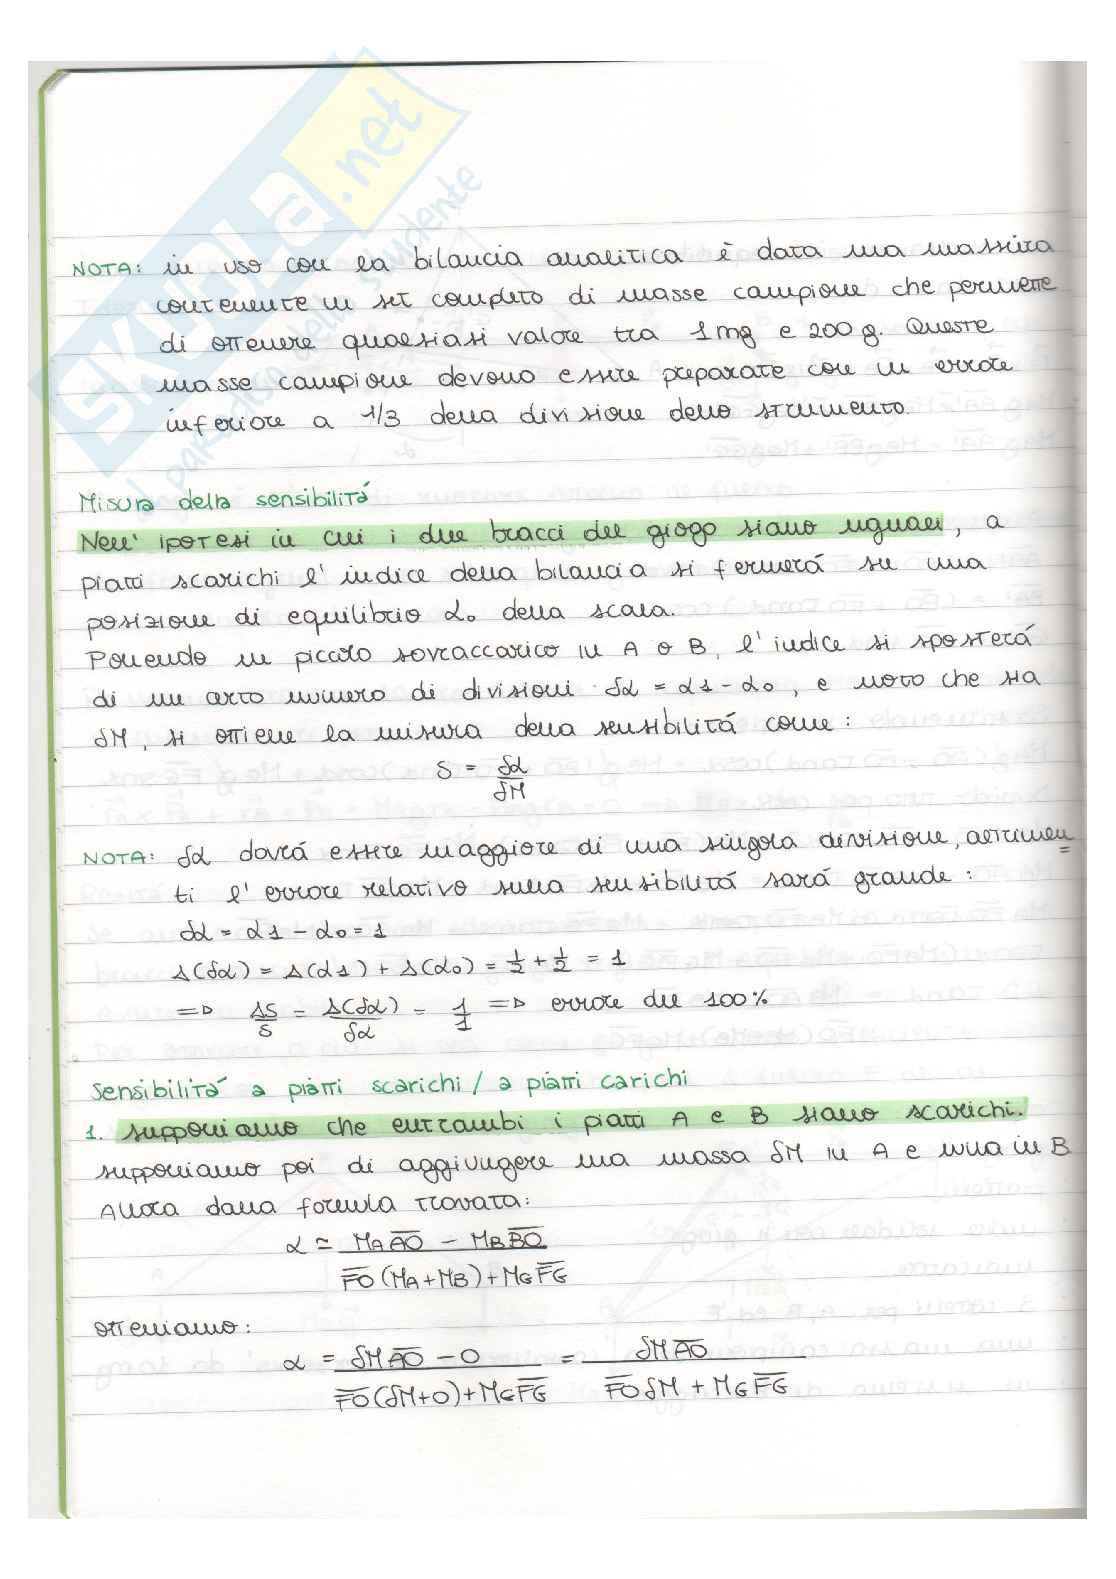 SKUOLA.net
il paradiso dello studente
NOTA: in uso con la bilancia analitica è data una massiera
contenente un set completo di masse campione che permette
di ottenere qualsiasi valore tra 1mg e 200g. Queste
masse campione devono essere preparate con un errore
inferiore a 1/3 della divisione dello strumento.
Misura della sensibilitá
Nell' ipotesi in cui i due bracci del giogo siano uguali, a
piatti scarichi l' indice della bilancia si fermerá su una
posizione di equilibrio α₀ della scala.
Ponendo un piccolo sovraccarico in A o B, l' indice si sposterá
di un certo numero di divisioni δα = α1 - α₀, e noto che sia
δM, si ottiene la misura della sensibilitá come:
S = δα / δM
NOTA: δα dovrá essere maggiore di una singola divisione, altrimen
ti l' errore relativo sulla sensibilitá sará grande:
δα = α1 - α₀ = 1
Δ(δα) = Δ(α1) + Δ(α₀) = 1/2 + 1/2 = 1
=> ΔS/S = Δ(δα)/δα = 1/1 => errore del 100%
Sensibilitá a piatti scarichi / a piatti carichi
1. supponiamo che entrambi i piatti A e B siano scarichi.
supponiamo poi di aggiungere una massa δM in A e nulla in B
Allora dalla formula trovata:
α ≃ (M_A A̅O̅ - M_B B̅O̅) / (F̅O̅(M_A + M_B) + M_G F̅G̅)
otteniamo:
α = (δM A̅O̅ - 0) / (F̅O̅(δM+0) + M_G F̅G̅) = δM A̅O̅ / (F̅O̅ δM + M_G F̅G̅)